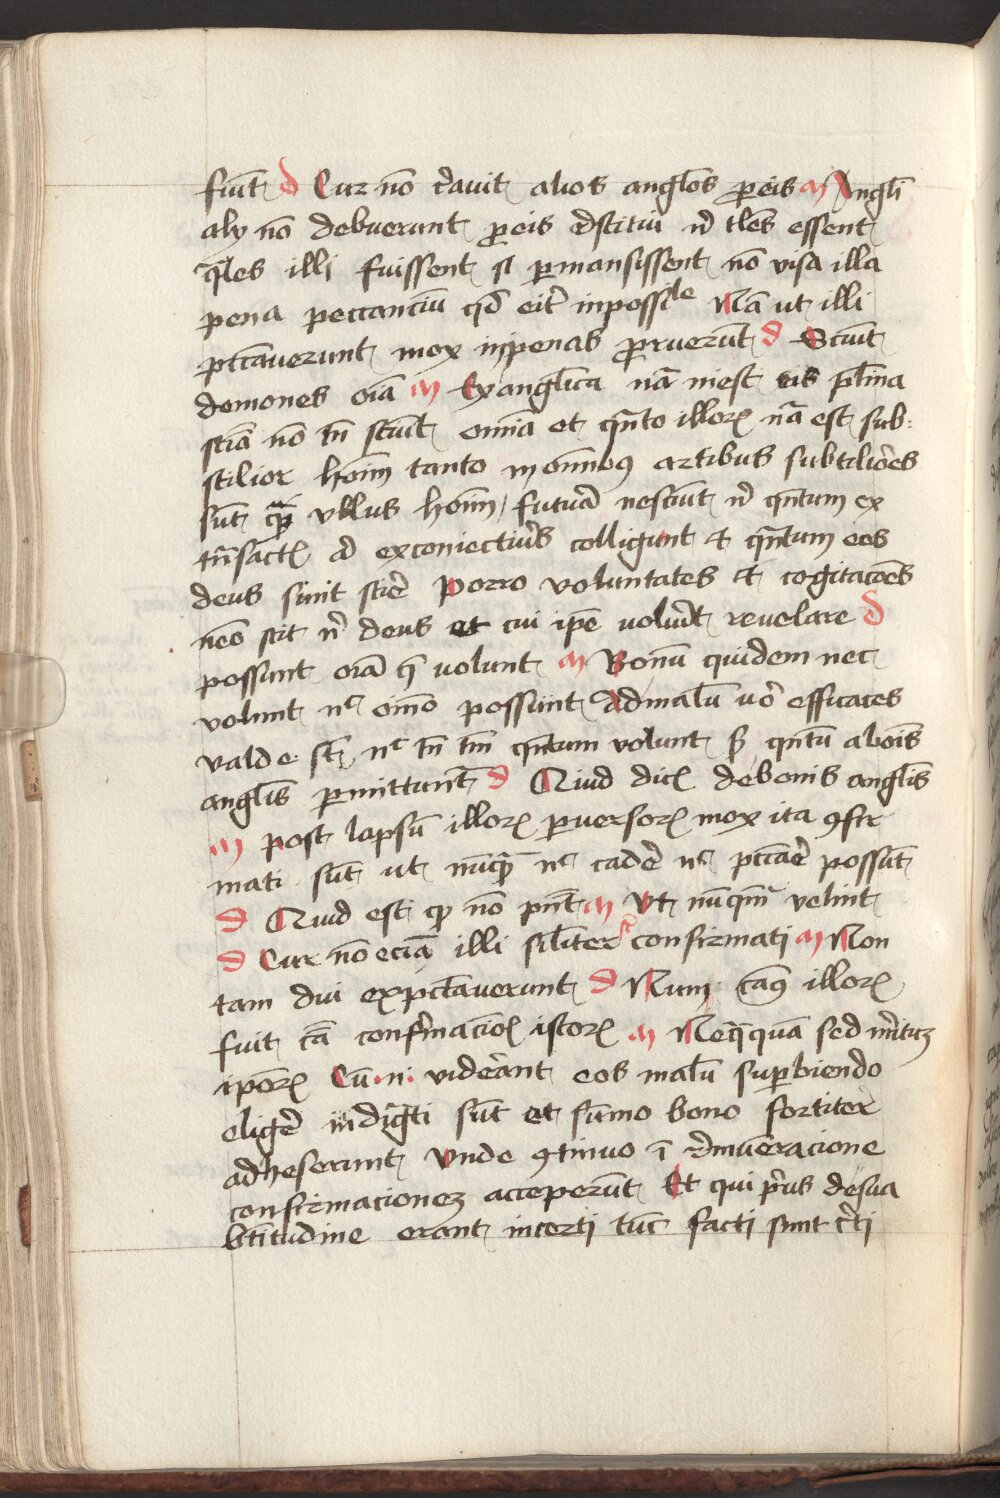 fiūt d Cur nō c̄avit alios angl̄os p̄ eis M Angl̄i
aly nō debuerunt p̄ eis r̄stitui n̄ tl̄es essent
q̄les illi fuissent si p̄mansissent nō visa illa
pena peccanciū qd̄ eīt inpossile Nā ut illi
pct̄averunt mox in penas p̄ruerūt d Sciūt
demones oīa M Ex angl̄ica nā inest eis pl̄ma
sciā nō tn̄ sciūt omīa et q̄nto illoꝝ nā est sub:
stilior hom̄ tanto in om̄ibꝰ artibus subtilior̄es
sūt q̄ꝫ vllus hom̄ / futura nesciūt n̄ qn̄tum ex
tn̄sactꝭ ac̄ ex coniectur̄is colligunt et qn̄tum eos
deus sinit scir̄e Porro voluntates et cogitacōes
nēo scit n̄ deus et cui ip̄e volūit revelare d
possunt oīa q̄ volunt M Bonū quidem nec
volunt nͨ oīno possunt Ad malū vō efficaces
valde st̄ nͨ tn̄ tm̄ qn̄tum volunt s̄ qn̄tū a boīs
angl̄is p̄mittunt̄ d Quid dicꝭ de bonis angl̄is
M post lapsū illoꝝ p̄versoꝝ mox ita ꝯfir
mati sūt ut nūqꝫ nͨ cader̄e nͨ pcc̄ar̄e possūt
d Quid est qꝫ nō pn̄t M Ut nūqm̄ velint
d Cur nō eciā illi sil̄iter confirmati M Non
tam diu expct̄averunt d Num cāꝰ illoꝝ
fuit cā confir̄macioꝭ istoꝝ M Neq̄quā sed m̄itū
ipōꝝ Cū .n. vider̄ant eos malū sup̄biendo
eliger̄e indigt̄i sūt et sūmo bono fortiter
adheserunt Unde ꝯtinuo ī r̄muneracione
confirmacionem acceperūt Et qui p̄us de sua
bt̄itudine erant incerti tūc facti sunt c̄ti